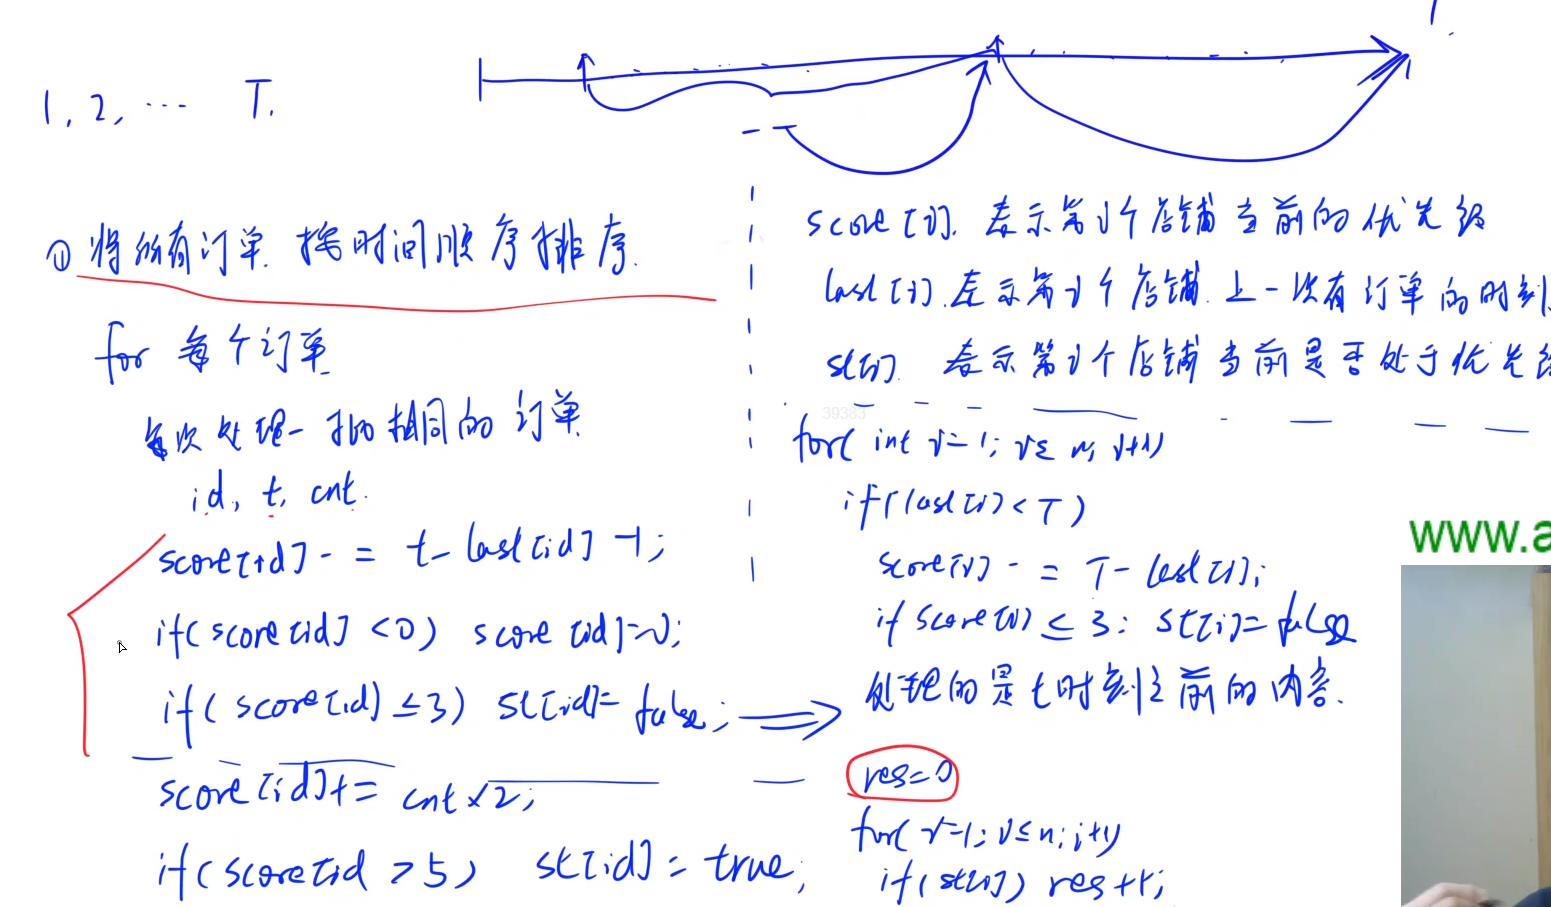 1, 2, ... T.
① 将所有订单 按时间顺序排序.
for 每个订单
每次处理一批相同的订单
id, t, cnt.
score[id] -= t - last[id] - 1;
if(score[id] < 0) score[id] = 0;
if(score[id] ≤ 3) st[id] = false;
score[id] += cnt × 2;
if(score[id > 5) st[id] = true;
score[i]. 表示第i个店铺当前的优先级
last[i]. 表示第i个店铺.上一次有订单的时刻
st[i] 表示第i个店铺当前是否处于优先
39383
for( int i=1; i≤n; i++)
if(last[i] < T)
score[i] -= T - last[i];
if score[i] ≤ 3: st[i] = false
处理的是t时刻之前的内容.
res=0
for( i=1; i≤n; i++)
if(st[i]) res++;
www.a